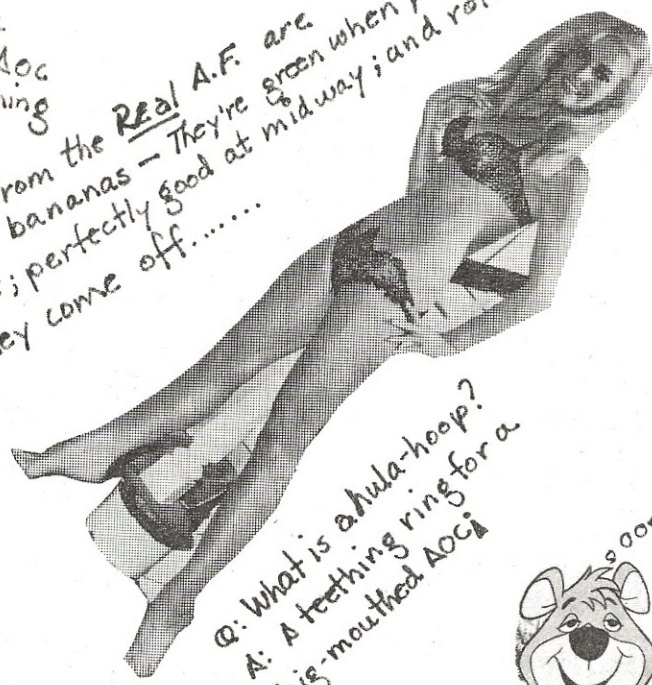 AOC
from the Real A.F. are
bananas - They're green when
; perfectly good at midway; and
come off.......
Q: What is a hula-hoop?
A: A teething ring for a
big-mouthed AOC¡